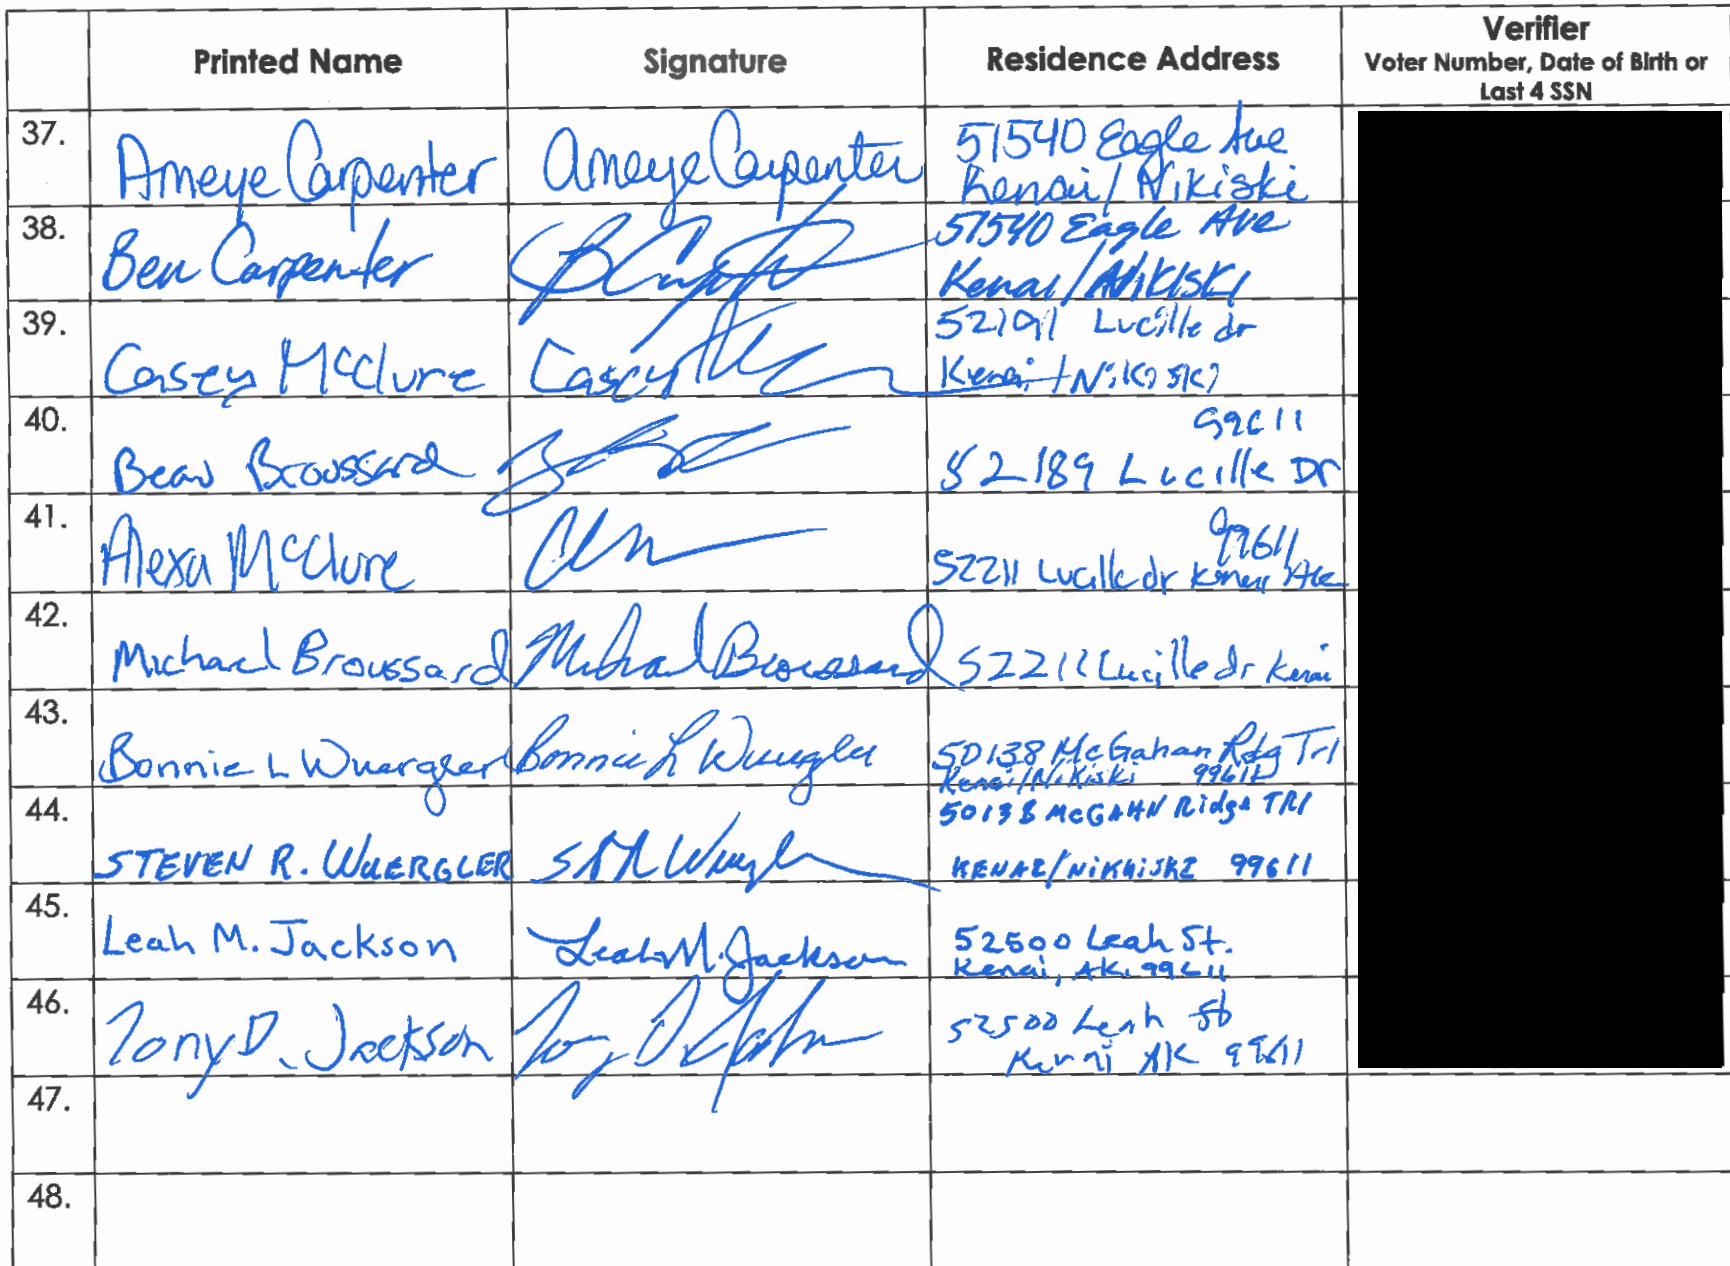 Printed Name Signature Residence Address Verifier
Voter Number, Date of Birth or
Last 4 SSN
37. Ameye Carpenter Ameye Carpenter 51540 Eagle Ave
Kenai/Nikiski
38. Ben Carpenter 51540 Eagle Ave
Kenai/Nikiski
39. Casey McClure Casey 52191 Lucille dr
Kenai/Nikiski
40. 99611
Beau Broussard 52189 Lucille Dr
41. 99611
Alexa McClure 52211 Lucille dr Kenai
42. Michael Broussard Michael Broussard 52211 Lucille dr Kenai
43. Bonnie L Wuergler Bonnie L Wuergler 50138 McGahan Rdg Trl
Kenai/Nikiski 99611
44. 50138 McGAHN Ridge TRl
STEVEN R. WUERGLER KENAI/NiKHiSKI 99611
45. Leah M. Jackson Leah M. Jackson 52500 Leah St.
Kenai, AK. 99611
46. Tony D. Jackson 52500 Leah St
Kenai AK 99611
47.
48.